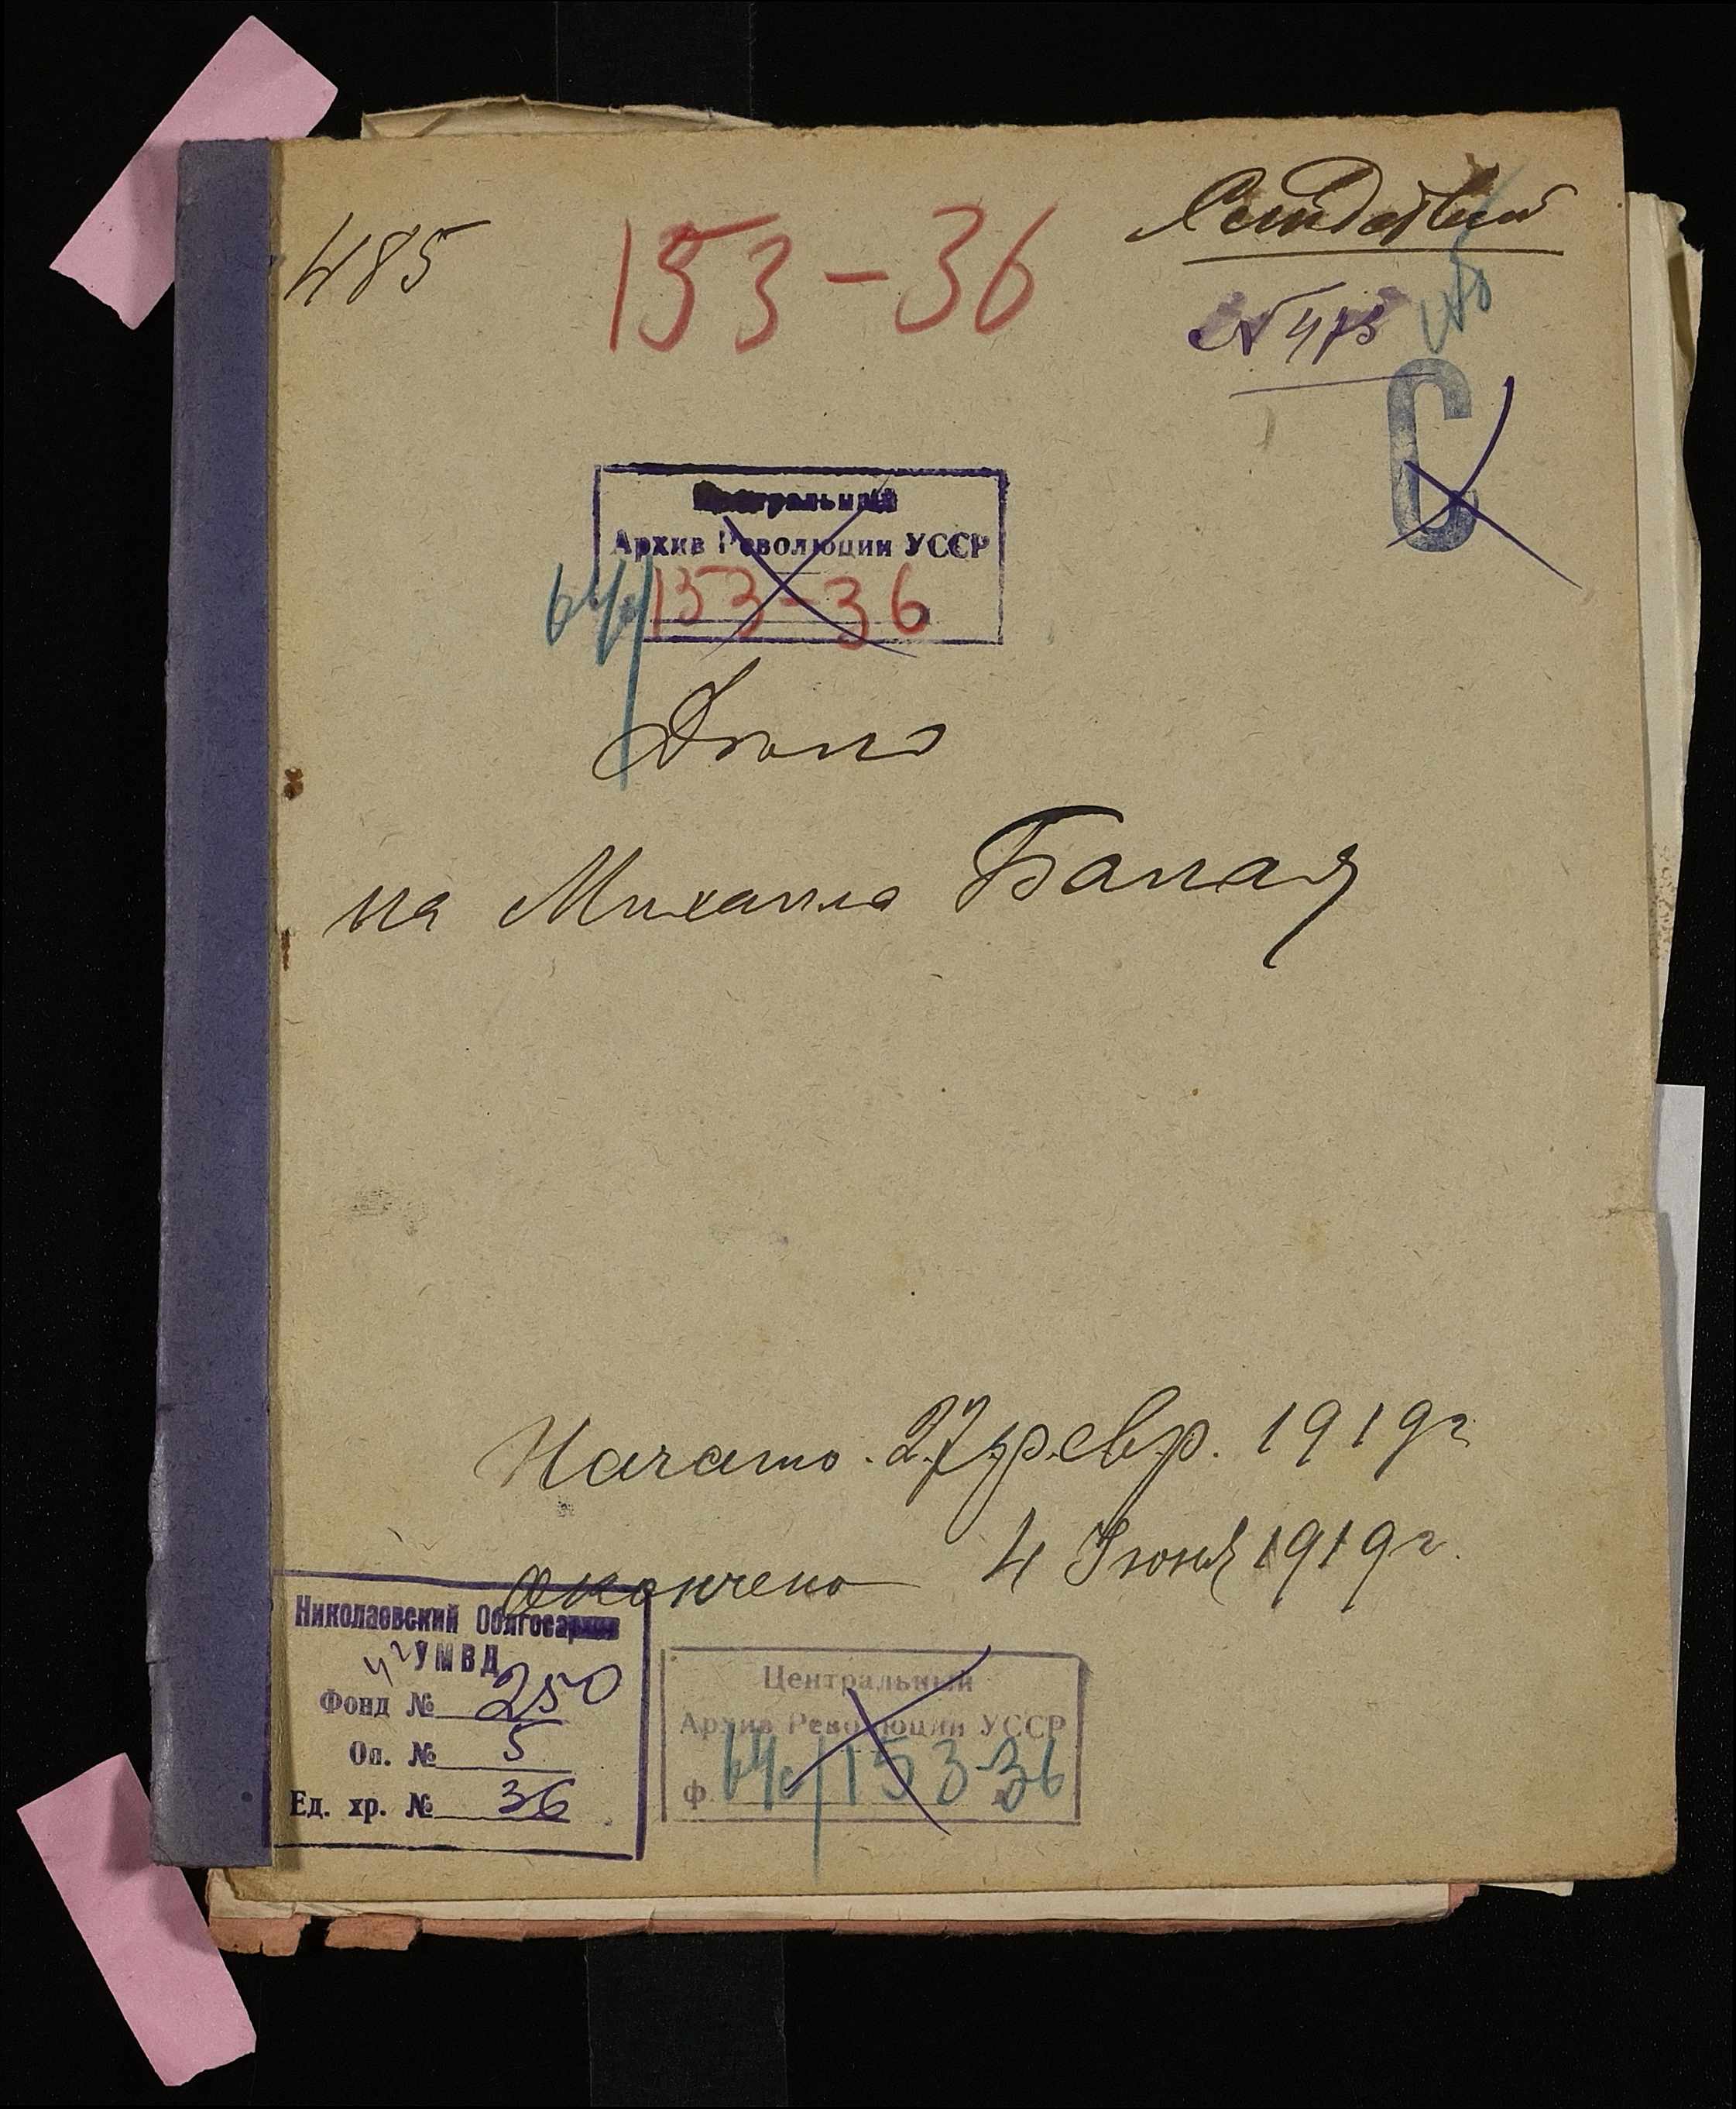 485
153-36
№ 473
С
Центральный
Архив Революции УССР
153-36
Дело
на Михаила Балая
Начато 27 февр. 1919 г
Окончено 4 Июня 1919 г.
Николаевский Облгосархив
УМВД
Фонд № 250
Оп. № 5
Ед. хр. № 36
Центральный
Архив Революции УССР
ф. 153-36